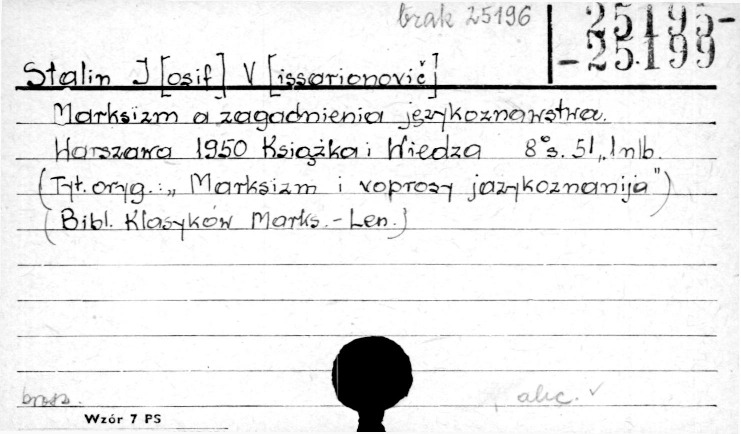 brak 25196
25195-
-25.199
Stalin J [osif] V [issarionovič]
Marksizm a zagadnienia językoznawstwa.
Warszawa 1950 Książka i Wiedza 8° s. 51, 1 nlb.
(Tyt. oryg.: „Marksizm i voprosy jazykoznanija")
(Bibl. Klasyków Marks.-Len.)
brosz.
akc. ✓
Wzór 7 PS